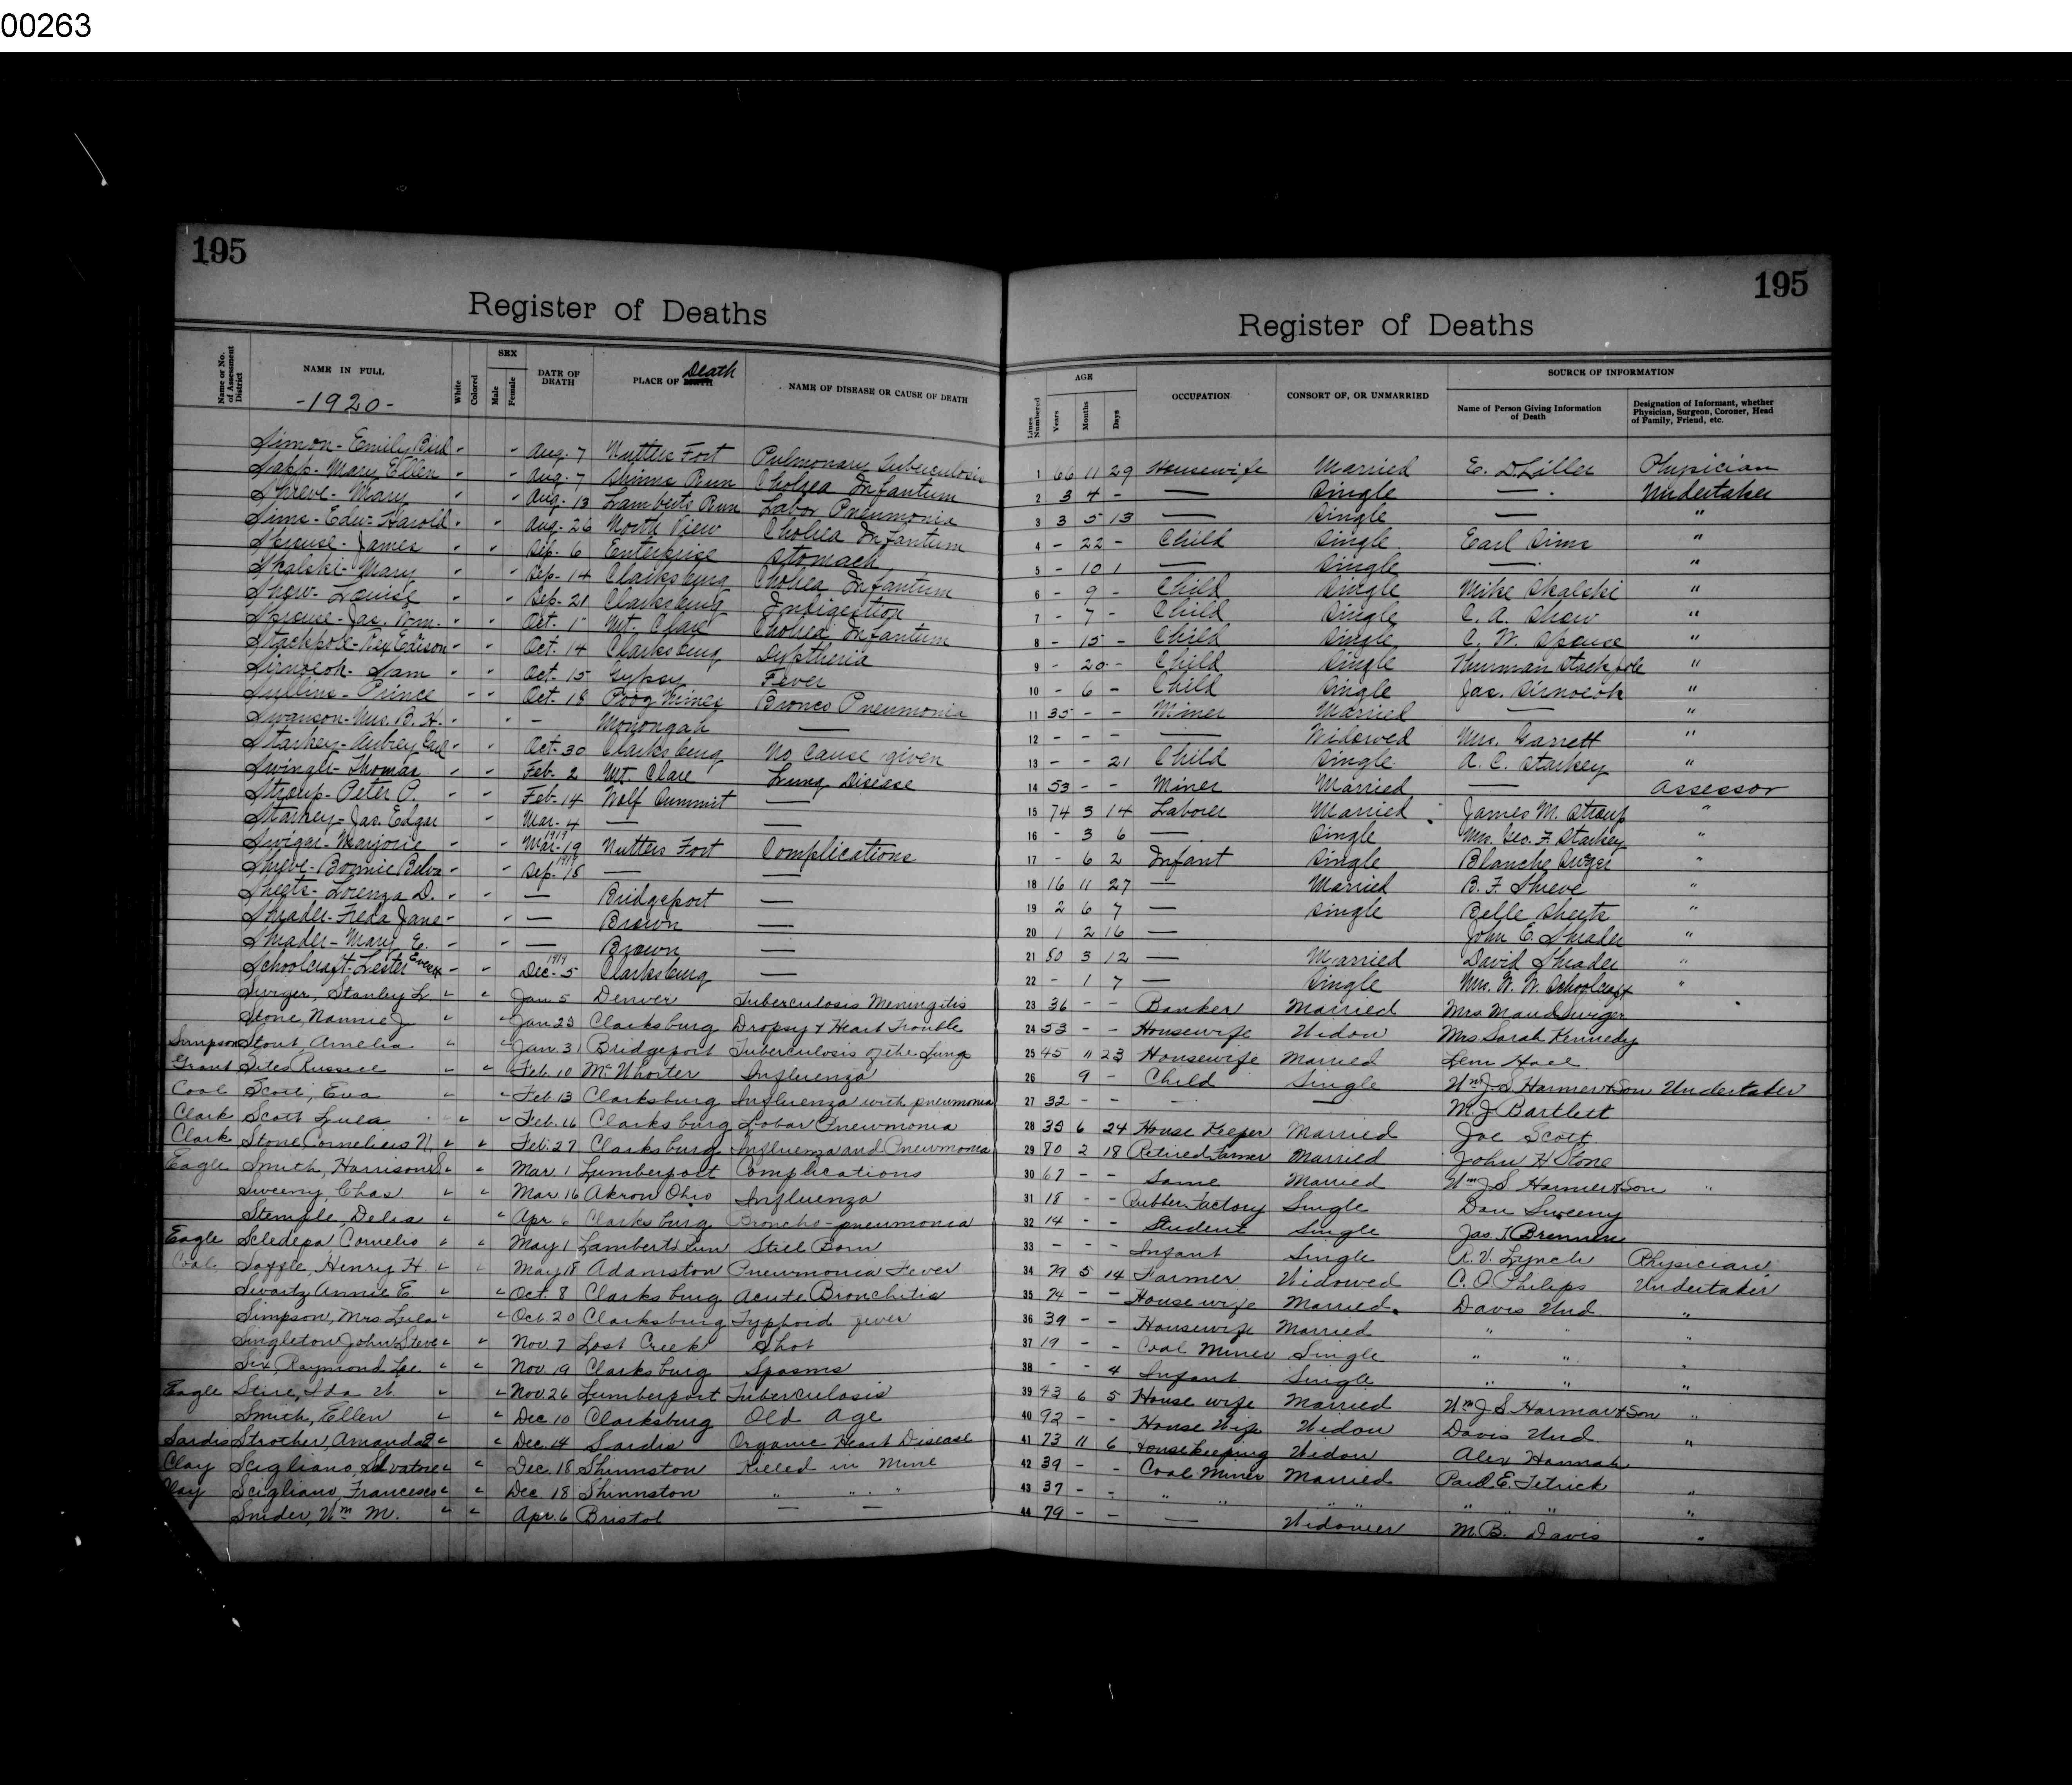 00263
195
Register of Deaths
Name or No. of Assessment District
NAME IN FULL
-1920-
White
Colored
SEX
Male
Female
DATE OF DEATH
PLACE OF Death
NAME OF DISEASE OR CAUSE OF DEATH
Simon - Emily Bird " " Aug. 7 Nutters Fort Pulmonary Tuberculosis
Sapp - Mary Ellen " " Aug. 7 Shinns Run Cholrea Infantum
Shreve - Mary " " Aug. 13 Lamberts Run Labor Pneumonia
Sims - Edw. Harold " " Aug. 26 North View Cholrea Infantum
Sprouse - James " " Sep. 6 Enterprise Stomach
Skalski - Mary " " Sep. 14 Clarksburg Cholrea Infantum
Show - Louise " " Sep. 21 Clarksburg Indigestion
Sprouse - Jas. Wm. " " Oct. 1 Mt. Clare Cholrea Infantum
Stackpole - Rex Edison " " Oct. 14 Clarksburg Dyptheria
Sirnocok - Sam " Oct. 15 Gypsy Fever
Sullins - Prince " " Oct. 18 Mines Bronco Pneumonia
Swanson - Mrs. B. H. " " — Monongah —
Starkey - Aubrey Carl " " Oct. 30 Clarksburg No Cause given
Swingle - Thomas " " Feb. 2 Mt. Clare Lung Disease
Stroup - Peter P. " " Feb. 14 Wolf Summit —
Starkey - Jas. Edgar " Mar. 4 — —
Swigar - Marjorie " " Mar. 19 1919 Nutters Fort Complications
Shreve - Bonnie Belva " " Sep. 18 1919 — —
Sheets - Lorenza D. " " — Bridgeport —
Shrader - Freda Jane " " — Brown —
Shrader - Mary E. " " — Brown —
Schoolcraft - Lester Everett " " Dec. 5 1919 Clarksburg —
Swiger, Stanley L " " Jan 5 Denver Tuberculosis Meningitis
Stone, Nannie J " " Jan 25 Clarksburg Dropsy & Heart Trouble
Simpson Stout, Amelia " " Jan. 31 Bridgeport Tuberculosis of the Lung
Grant Sites Russell " " Feb. 10 McWhorter Influenza
Coal Scott, Eva " " Feb 13 Clarksburg Influenza with pneumonia
Clark Scott Lula " " Feb. 16 Clarksburg Lobar Pneumonia
Clark Stone, Cornelius N. " " Feb. 27 Clarksburg Influenza and Pneumonia
Eagle Smith, Harrison S " " Mar. 1 Lumberport Complications
Sweeny, Chas " " Mar 16 Akron Ohio Influenza
Stemple, Delia " " Apr 6 Clarksburg Broncho-pneumonia
Eagle Scledepa Cornelio " " May 1 Lamberts Run Still Born
Coal Saffle, Henry H. " " May 18 Adamston Pneumonia Fever
Swartz Annie E " " Oct. 8 Clarksburg Acute Bronchitis
Simpson, Mrs Lula " " Oct. 20 Clarksburg Typhoid fever
Singleton John Steve " " Nov. 7 Lost Creek Shot
Six, Raymond Lee " " Nov. 19 Clarksburg Spasms
Eagle Stire, Ida V. " " Nov. 26 Lumberport Tuberculosis
Smith, Ellen " " Dec 10 Clarksburg Old Age
Sardis Strother, Amanda E " " Dec. 14 Sardis Organic Heart Disease
Clay Scigliano, Salvatore " " Dec. 18 Shinnston Killed in Mine
Clay Scigliano, Francesco " " Dec. 18 Shinnston " " "
Snider, Wm M. " " Apr. 6 Bristol — —
195
Register of Deaths
Lines Numbered
AGE
Years
Months
Days
OCCUPATION
CONSORT OF, OR UNMARRIED
SOURCE OF INFORMATION
Name of Person Giving Information of Death
Designation of Informant, whether Physician, Surgeon, Coroner, Head of Family, Friend, etc.
1 66 11 29 Housewife Married E. D. Liller Physician
2 3 4 - — Single — Undertaker
3 3 5 13 — Single — "
4 - 22 - Child Single Earl Sims "
5 - 10 1 — Single — "
6 - 9 - Child Single Mike Skalski "
7 - 7 - Child Single C. A. Show "
8 - 15 - Child Single C. W. Spouse "
9 - 20 - Child Single Thurman Stackpole "
10 - 6 - Child Single Jas. Sirnocok "
11 35 - - Miner Married — "
12 - - - — Widowed Mrs. Garrett "
13 - - 21 Child Single A. C. Starkey "
14 53 - - Miner Married — Assessor
15 74 3 14 Laborer Married James M. Stroup "
16 - 3 6 — Single Mrs. Geo. F. Starkey "
17 - 6 2 Infant Single Blanche Swiger "
18 16 11 27 — Married B. F. Shreve "
19 2 6 7 — Single Belle Sheets "
20 1 2 16 — John E. Shrader "
21 50 3 12 — Married David Shrader "
22 - 1 7 — Single Mrs. W. W. Schoolcraft "
23 36 - - Banker Married Mrs Maud Swiger
24 53 - - Housewife Widow Mrs Sarah Kennedy
25 45 11 23 Housewife Married Lem Hall
26 9 - Child Single Wm J S Harmer & Son Undertaker
27 32 - - - — M. J Bartlett
28 35 6 24 House Keeper Married Joe Scott
29 80 2 18 Retired Farmer Married John H Stone
30 67 - - Same Married Wm J S Harmer & Son "
31 18 - - Rubber Factory Single Dan Sweeny
32 14 - - Student Single Jas. T. Brennen
33 - - - Infant Single R. V. Lynch Physician
34 79 5 14 Farmer Widowed C. O. Philips Undertaker
35 74 - - Housewife Married Davis Und. "
36 39 - - Housewife Married " " "
37 19 - - Coal Miner Single " " "
38 - - 4 Infant Single " " "
39 43 6 5 House wife Married Wm J S Harmar & Son "
40 92 - - House Wife Widow Davis Und "
41 73 11 6 Housekeeping Widow Alex Hannah
42 39 - - Coal Miner Married Paul E. Tetrick "
43 37 - - " " " " " " "
44 79 - - — Widower M. B. Davis "